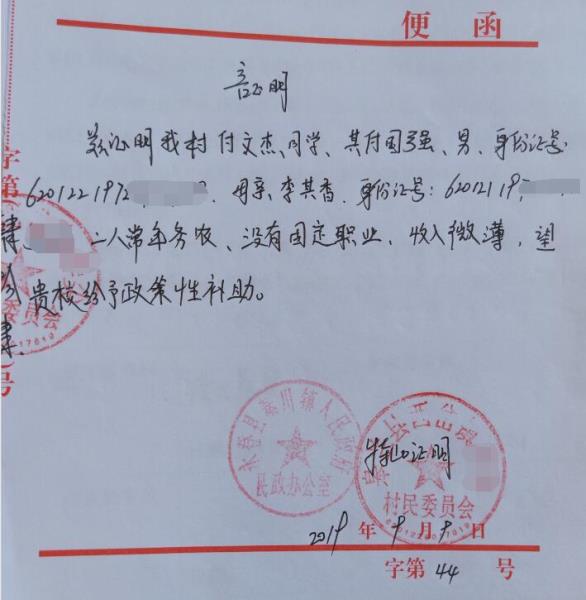 便函
证明
兹证明我村付文杰同学、其付国强、男、身份证号
6201221972
母亲、李其香、身份证号:620121197
二人常年务农、没有固定职业、收入微薄,望
贵校给予政策性补助。
特此证明
村民委员会
民政办公室
2019年9月9日
字第44号
字第
号